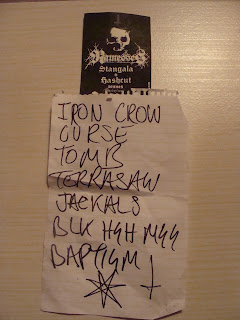 Ramesses
Stangala
Hashcut
IRON CROW
CURSE
TOMB
TERRASAW
JACKALS
BLK HGH MGG
BAPTIGM